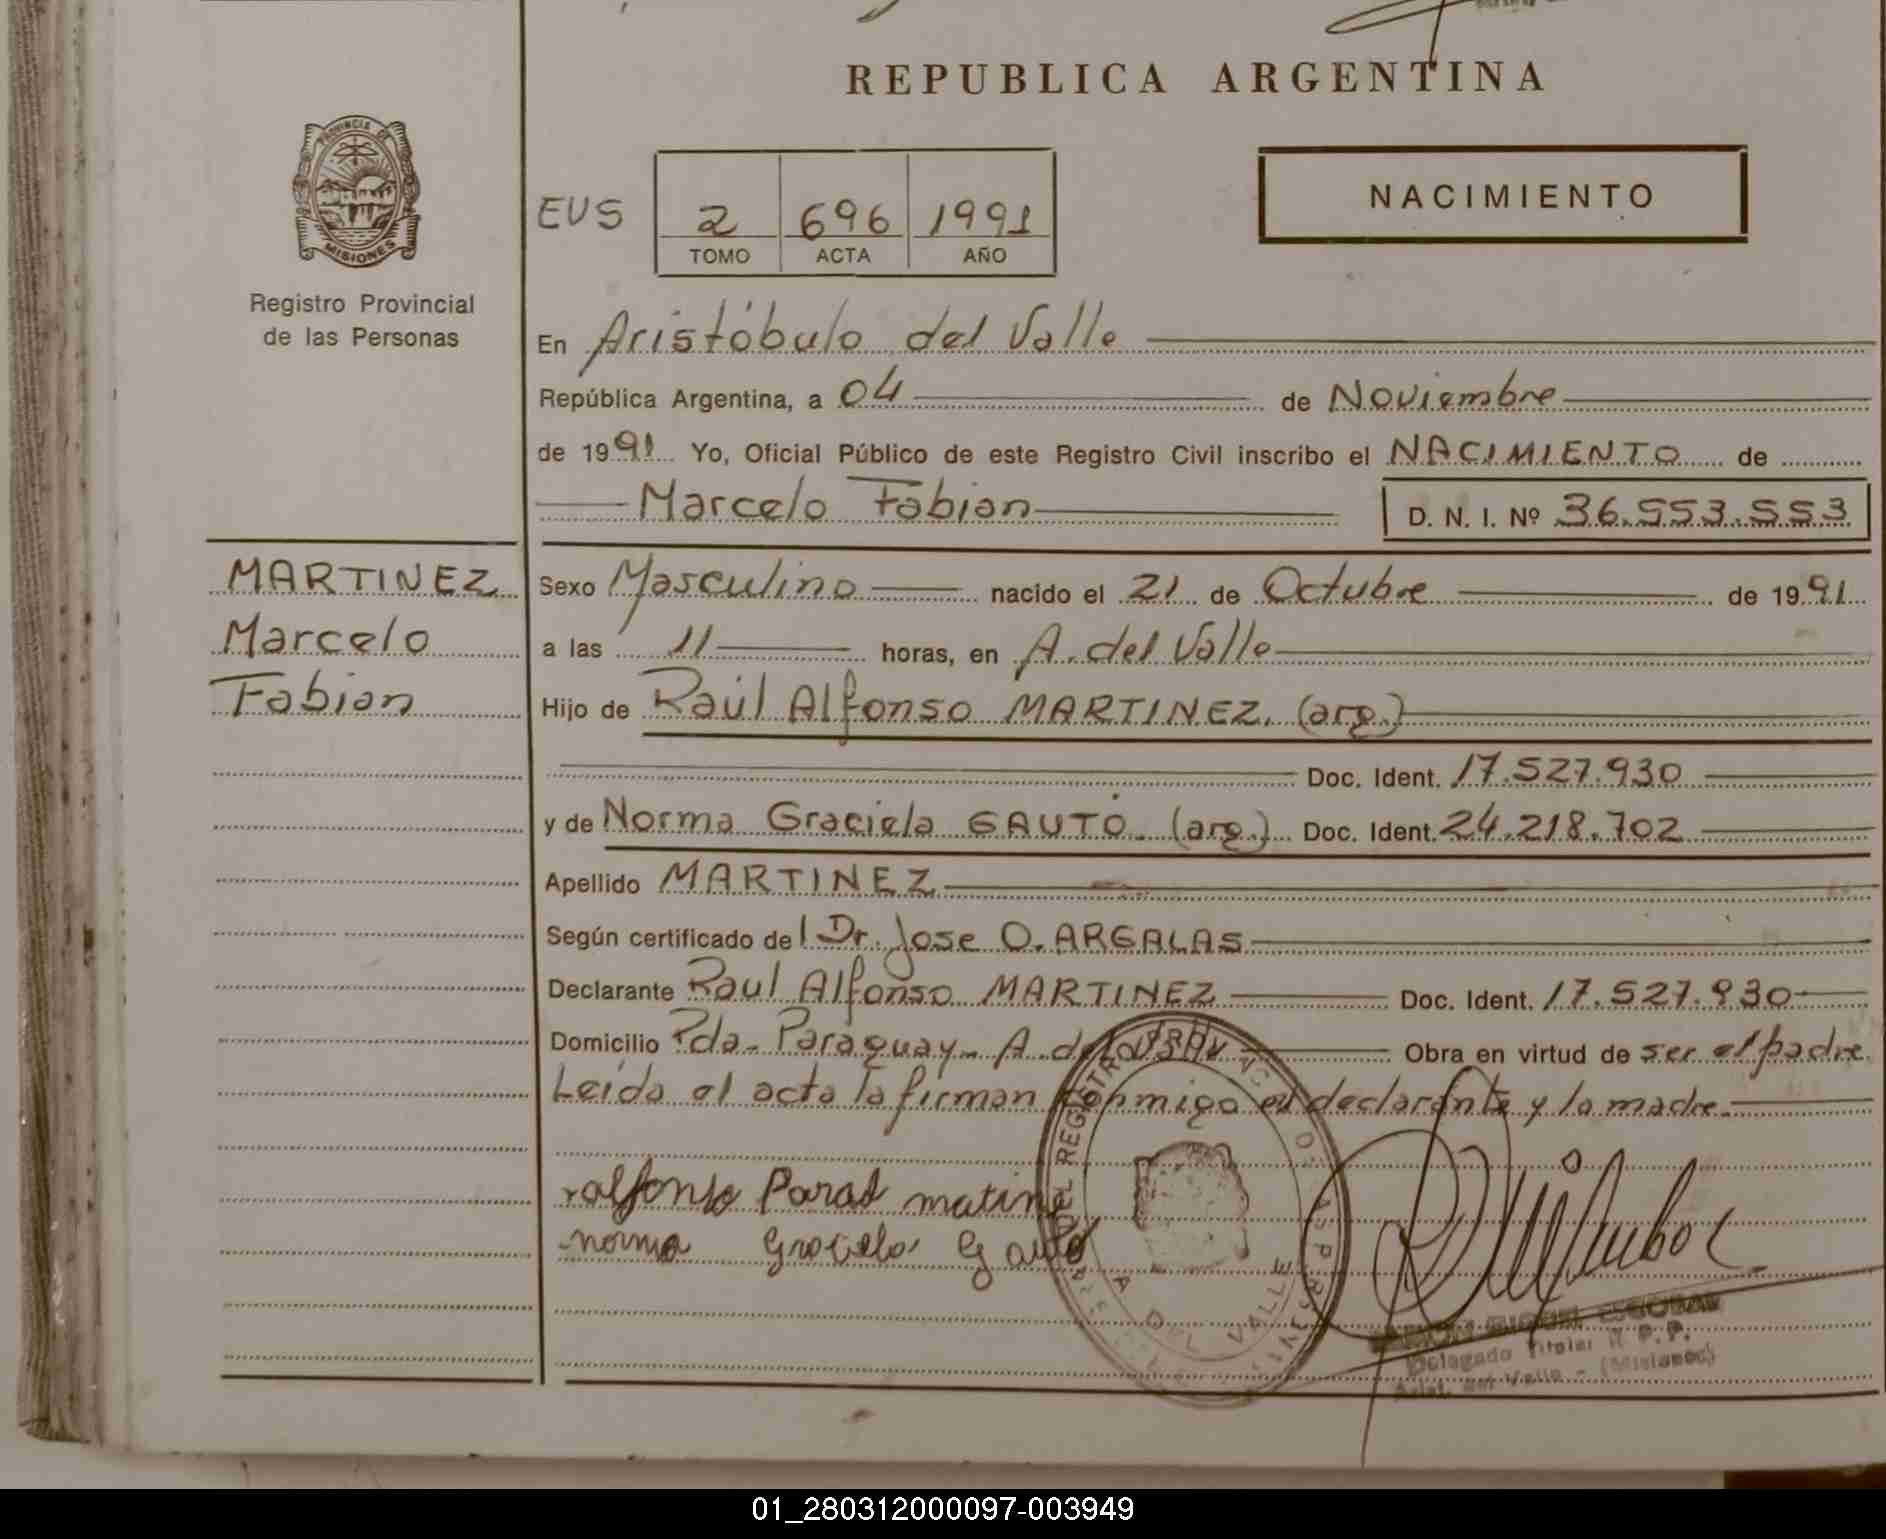 REPUBLICA ARGENTINA
PROVINCIA DE
MISIONES
Registro Provincial
de las Personas
NACIMIENTO
EUS 2 696 1991
TOMO ACTA AÑO
En Aristóbulo del Valle
República Argentina, a 04 de Noviembre
de 1991 Yo, Oficial Público de este Registro Civil inscribo el NACIMIENTO de
Marcelo Fabian D. N. I. Nº 36.553.553
MARTINEZ
Marcelo
Fabian
Sexo Masculino nacido el 21 de Octubre de 1991
a las 11 horas, en A. del Valle
Hijo de Raúl Alfonso MARTINEZ. (arg.)
Doc. Ident. 17.527.930
y de Norma Graciela GAUTO. (arg.) Doc. Ident. 24.218.702
Apellido MARTINEZ
Según certificado del Dr. Jose O. ARGALAS
Declarante Raul Alfonso MARTINEZ Doc. Ident. 17.527.930
Domicilio Pda. Paraguay - A. del Valle Obra en virtud de ser el padre
Leída el acta la firman conmigo el declarante y la madre.
ralfonso matine
norma Graciela Gauto
DEL REGISTRO
A. DEL VALLE
ESCOBAR
Delegado Titular R. P. P.
Arist. del Valle - (Misiones)
01_280312000097-003949